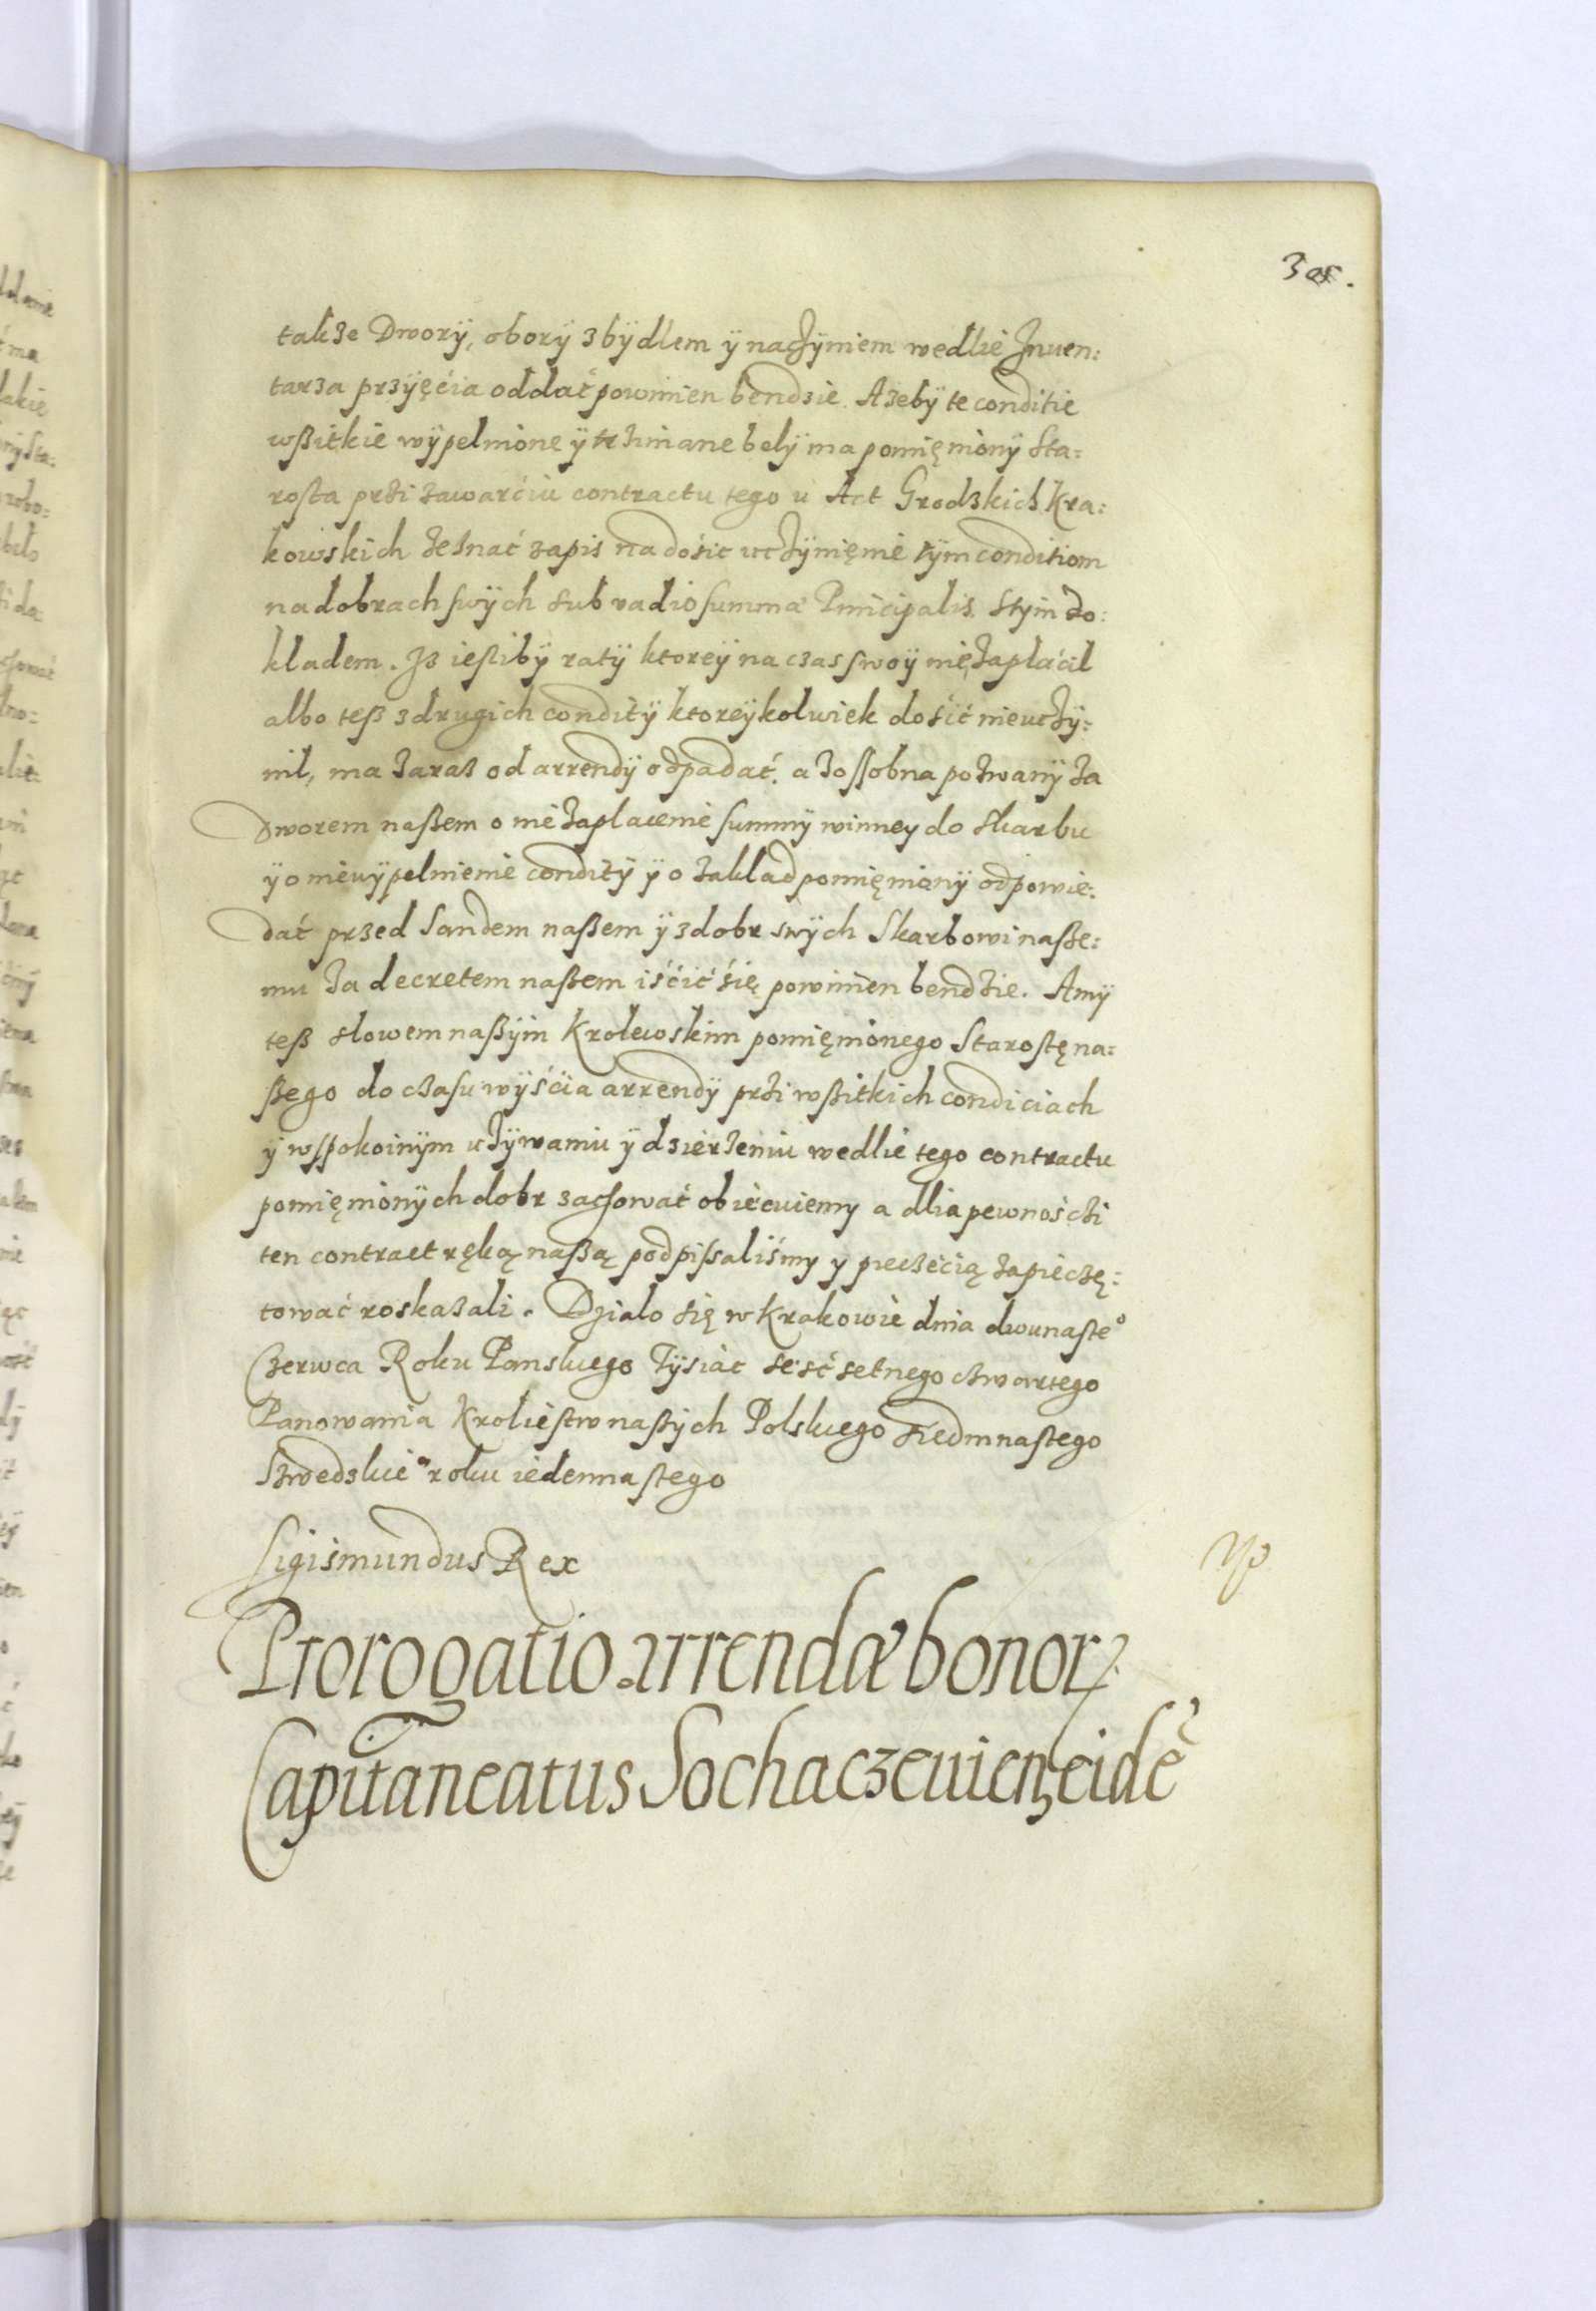 305.
takze Dwory, obory z bydlem y naczyniem wedlie Inuen:
tarza przyięcia oddać powinien bendzie. A zeby te conditie
wßitkie wypelnione y trzimane bely ma pomięniony Sta:
rosta przi zawarciu contractu tego u Act Grodzkich Kra:
kowskich zeznać zapis na dosic uczynięnie tym conditiom
na dobrach swych sub vadio summæ Principalis. Stym do:
kladem. Iz iesliby raty ktorey na czas swoy nie zaplacil
albo teß z drugich condity ktoreykolwiek dosić nie uczy:
nil, ma zaraz od arrendy odpadać. a zossobna pozwany za
Dworem naßem o nie zaplacenie summy winney do skarbu
y o niewypelnienie condity y o zaklad pomięniony odpowie:
dać przed Sandem naßem y z dobr swych Skarbowi naße:
mu za decretem naßem iśćić się powinien bendzie. A my
teß slowem naßym Krolewskim pomięnionego Starostę na:
ßego do czasu wyścia arrendy przi wßitkich condiciach
y w spokoinym używaniu y dzierżeniu wedlie tego contractu
pomięnionych dobr zachować obiecuiemy a dlia pewnosczi
ten contract ręką naßą podpissaliśmy y pieczęcią zapieczę:
tować roskazali. Dzialo się w Krakowie dnia dwunasteº
Czerwca Roku Panskiego Tysiąc seść setnego czwartego
Panowania Kroliestw naßych Polskiego siedmnastego
Szwedskieº roku iedennastego
Sigismundus Rex
Prorogatio arrendæ bonoꝝ
Capitaneatus Sochaczeuien eidē